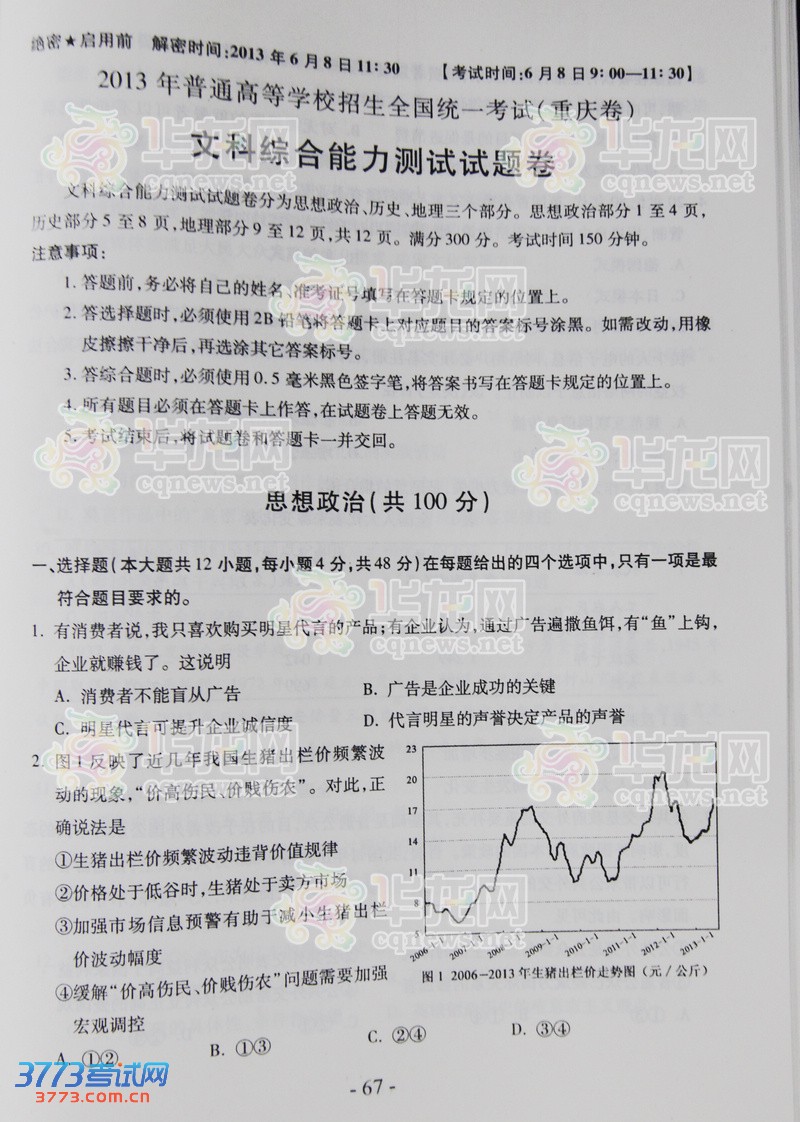 绝密★启用前 解密时间:2013年6月8日11:30 【考试时间:6月8日9:00—11:30】
2013年普通高等学校招生全国统一考试(重庆卷)
文科综合能力测试试题卷
文科综合能力测试试题卷分为思想政治、历史、地理三个部分。思想政治部分1至4页,
历史部分5至8页,地理部分9至12页,共12页。满分300分。考试时间150分钟。
注意事项:
1.答题前,务必将自己的姓名、准考证号填写在答题卡规定的位置上。
2.答选择题时,必须使用2B铅笔将答题卡上对应题目的答案标号涂黑。如需改动,用橡
皮擦擦干净后,再选涂其它答案标号。
3.答综合题时,必须使用0.5毫米黑色签字笔,将答案书写在答题卡规定的位置上。
4.所有题目必须在答题卡上作答,在试题卷上答题无效。
5.考试结束后,将试题卷和答题卡一并交回。
思想政治(共100分)
一、选择题(本大题共12小题,每小题4分,共48分)在每题给出的四个选项中,只有一项是最
符合题目要求的。
1. 有消费者说,我只喜欢购买明星代言的产品;有企业认为,通过广告遍撒鱼饵,有“鱼”上钩,
企业就赚钱了。这说明
A. 消费者不能盲从广告 B. 广告是企业成功的关键
C. 明星代言可提升企业诚信度 D. 代言明星的声誉决定产品的声誉
2. 图1反映了近几年我国生猪出栏价频繁波
动的现象,“价高伤民、价贱伤农”。对此,正
确说法是
①生猪出栏价频繁波动违背价值规律
②价格处于低谷时,生猪处于卖方市场
③加强市场信息预警有助于减小生猪出栏
价波动幅度
④缓解“价高伤民、价贱伤农”问题需要加强
宏观调控
A. ①② B. ①③ C. ②④ D. ③④
23
20
17
14
11
8
5
2006-1-1
2007-1-1
2008-1-1
2009-1-1
2010-1-1
2011-1-1
2012-1-1
2013-1-1
图1 2006—2013年生猪出栏价走势图(元/公斤)
- 67 -
华龙网
cqnews.net
华龙网
cqnews.net
华龙网
cqnews.net
华龙网
cqnews.net
华龙网
cqnews.net
华龙网
cqnews.net
华龙网
cqnews.net
华龙网
cqnews.net
华龙网
cqnews.net
华龙网
cqnews.net
华龙网
cqnews.net
3773考试网
3773.com.cn